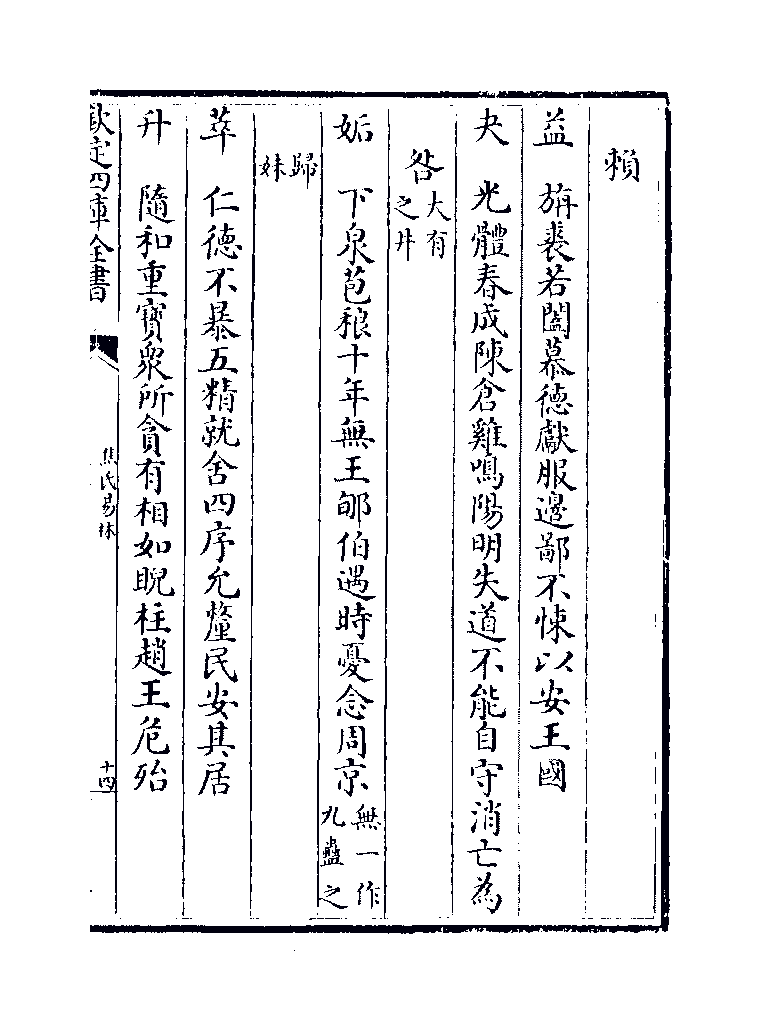 賴
益　旃裘若闔慕德獻服邊鄙不悚以安王國
夬　光體春成陳倉雞鳴陽明失道不能自守消亡為
咎大有之井
姤　下泉苞稂十年無王郇伯遇時憂念周京無一作九蠱之
歸妹
萃　仁德不暴五精就舍四序允釐民安其居
升　隨和重寶衆所貪有相如睨柱趙王危殆
欽定四庫全書
焦氏易林
十四